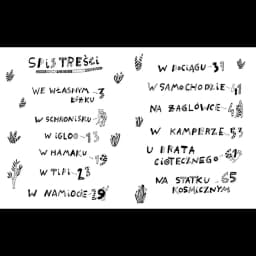 SPIS TREŚCI
WE WŁASNYM 3
ŁÓŻKU
W SCHRONISKU
W IGLOO 13
W HAMAKU
W TIPI 23
W NAMIOCIE 29
W POCIĄGU 31
W SAMOCHODZIE 41
NA ŻAGLÓWCE
W KAMPERZE 53
U BRATA
CIOTECZNEGO 61
NA STATKU 65
KOSMICZNYM